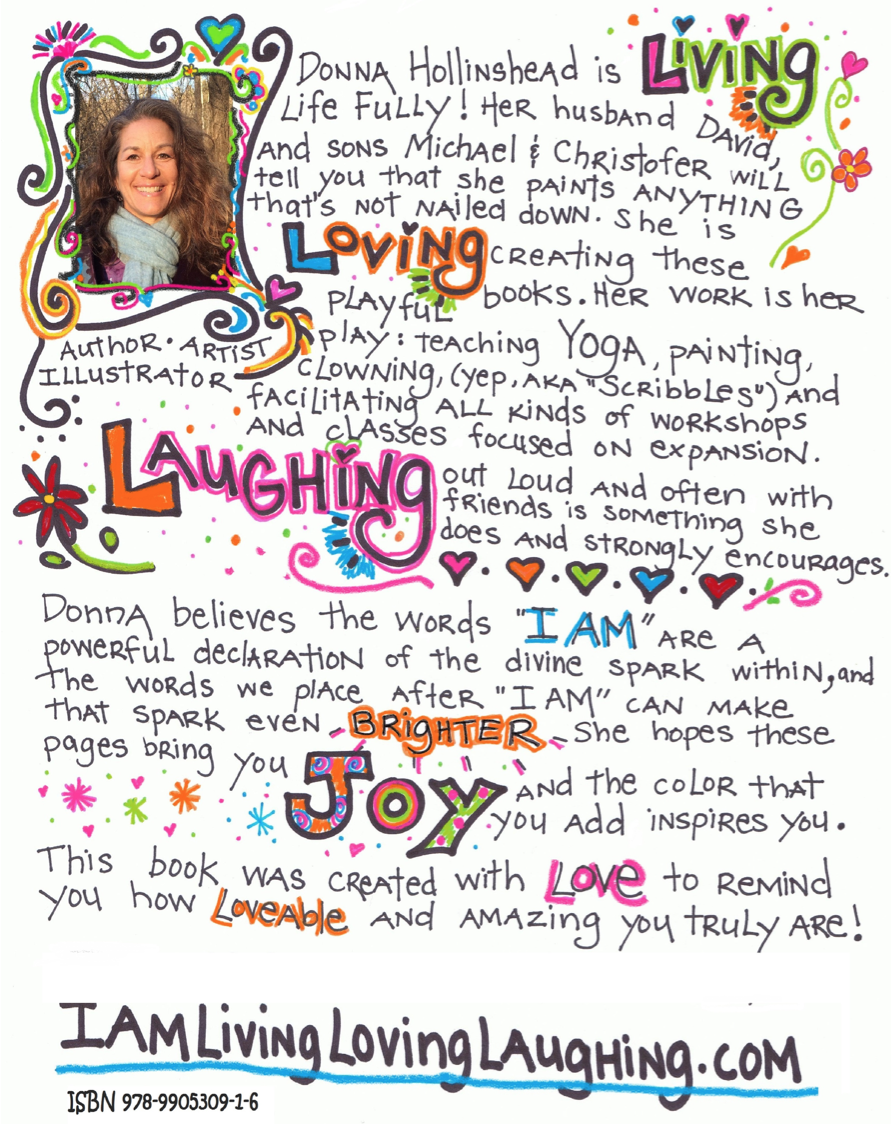 Donna Hollinshead is LiViNg
Life Fully! Her husband David,
and sons Michael & Christofer will
tell you that she paints anything
that's not nailed down. She is
Loving creating these
playful books. Her work is her
play: teaching Yoga, painting,
clowning, (yep, aka "Scribbles") and
facilitating all kinds of workshops
and classes focused on expansion.
Author • Artist
Illustrator
Laughing out loud and often with
friends is something she
does and strongly encourages.
Donna believes the words "I AM" are a
powerful declaration of the divine spark within, and
the words we place after "I AM" can make
that spark even - Brighter - She hopes these
pages bring you Joy and the color that
you add inspires you.
This book was created with Love to remind
you how Loveable and amazing you truly are!
IAMLivingLovingLaughing.com
ISBN 978-9905309-1-6